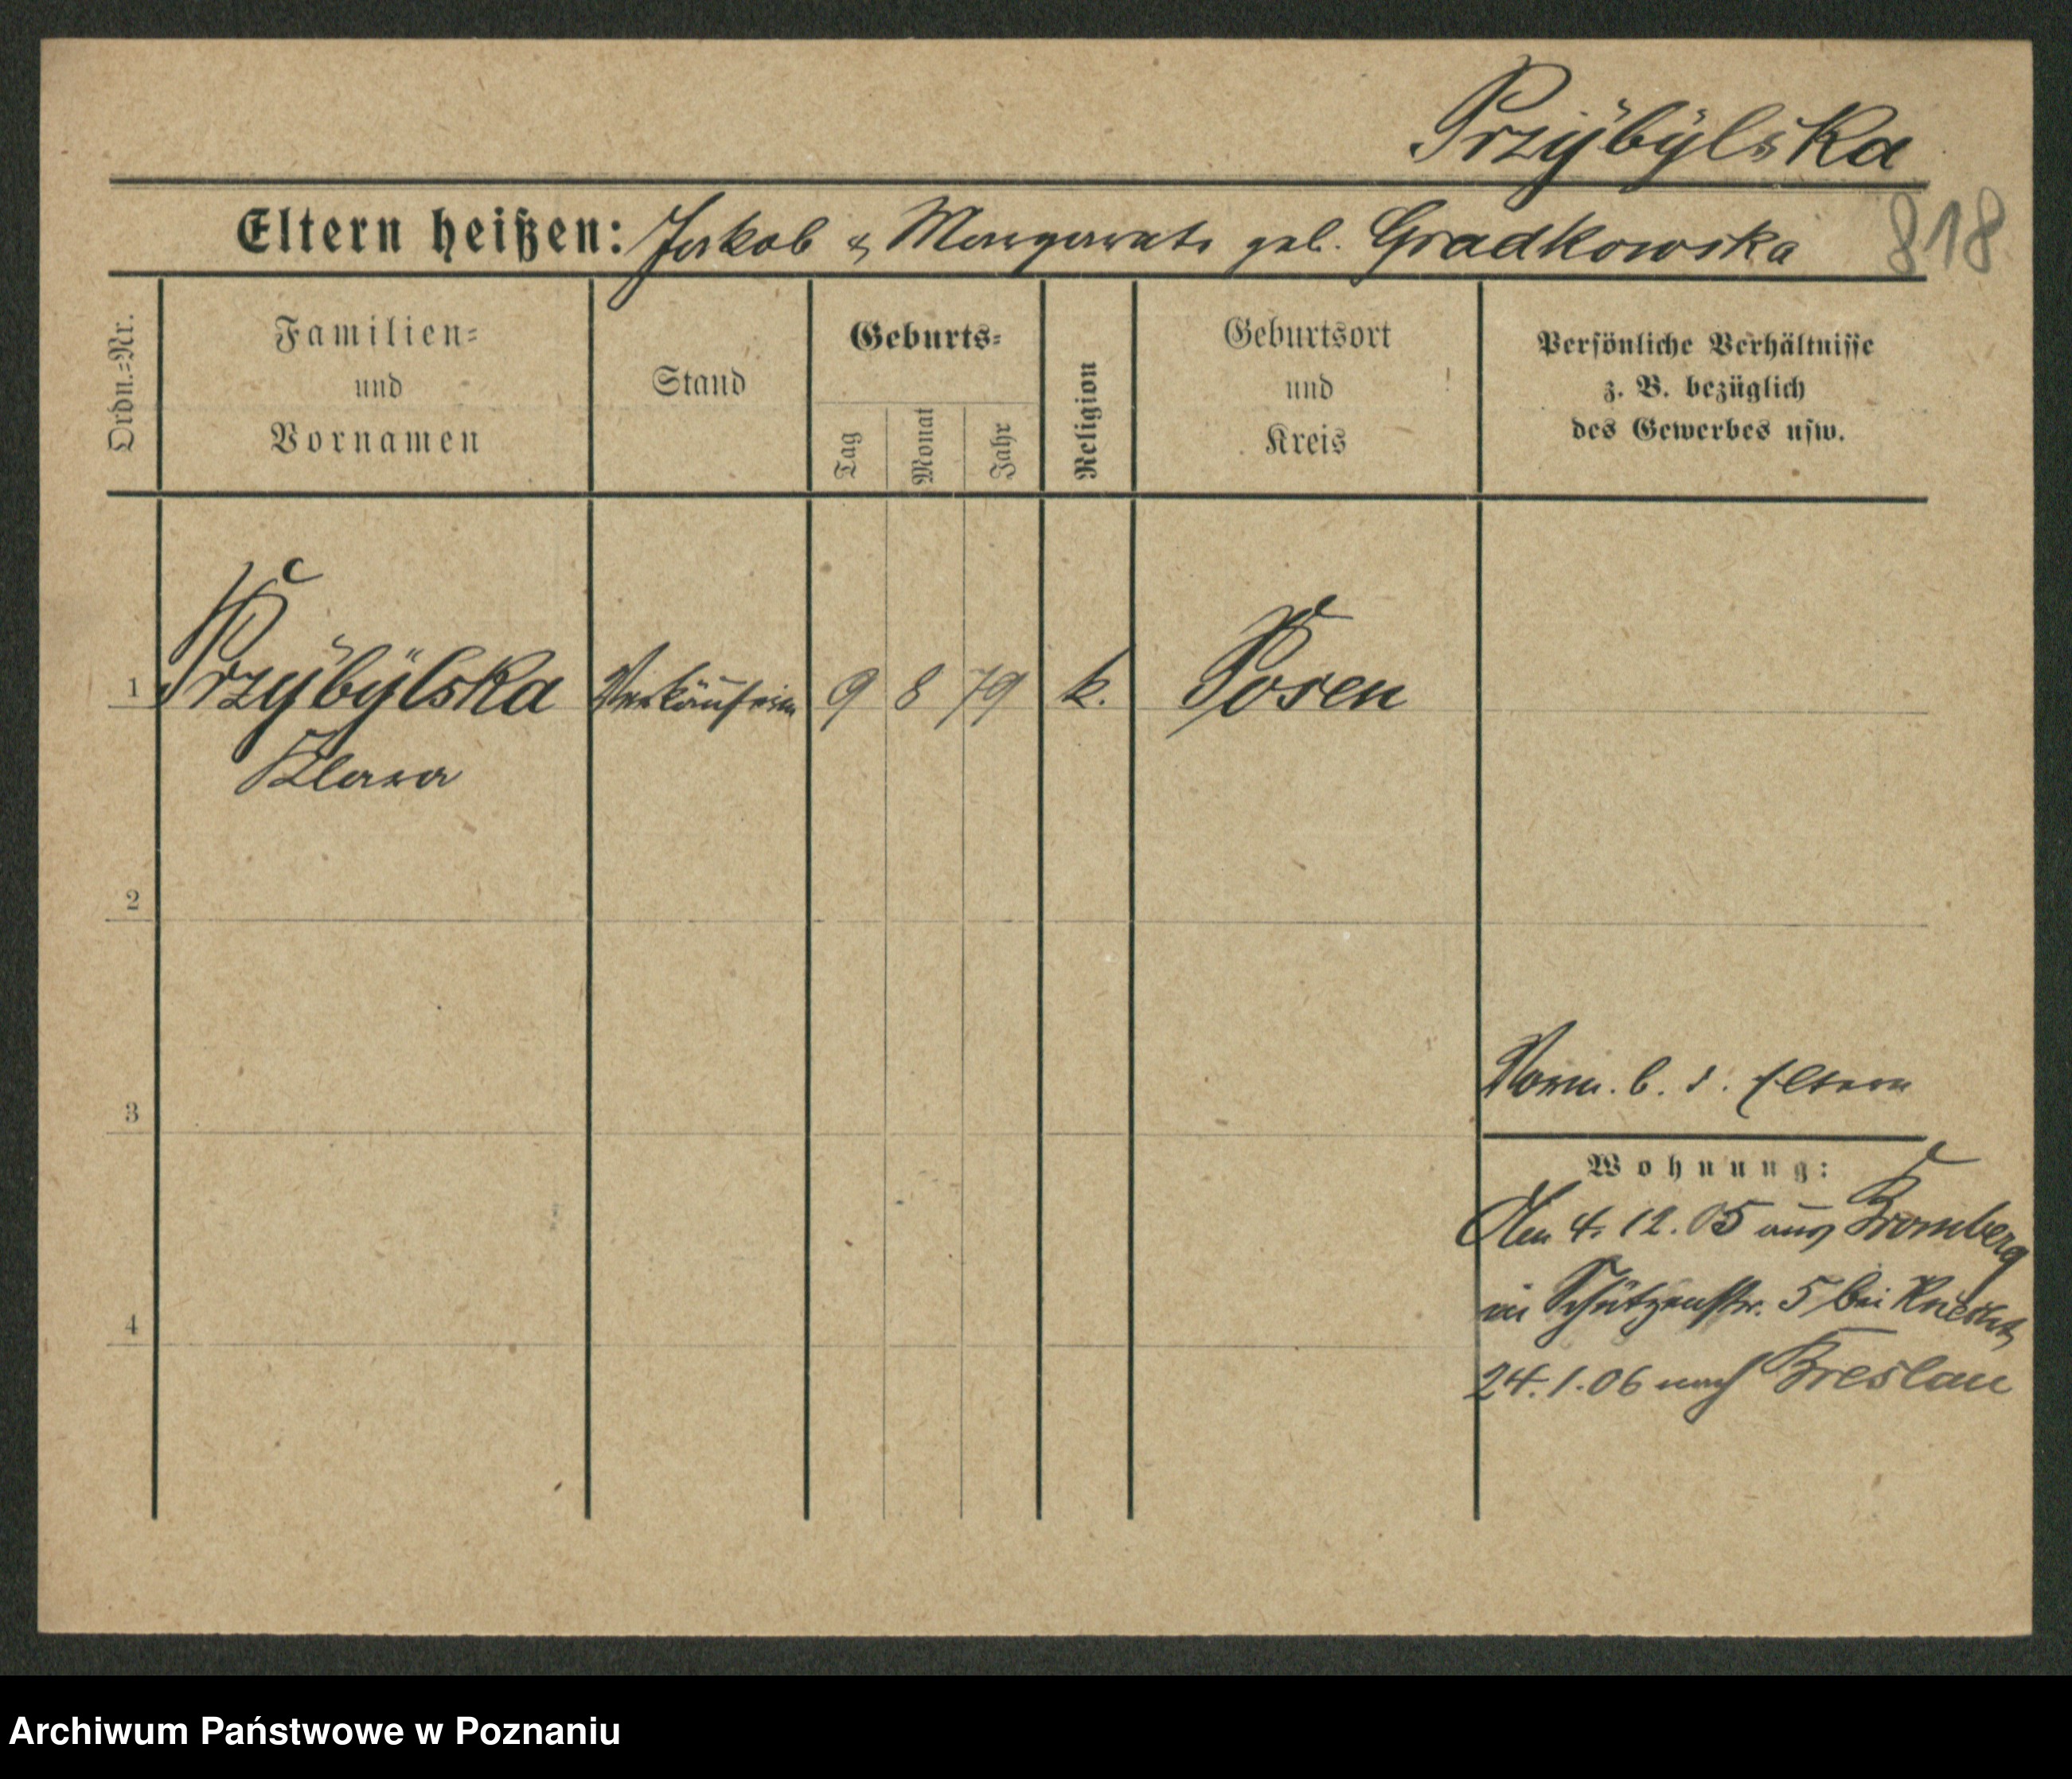 Przÿbÿlska
818
Eltern heißen: Jakob & Margareta geb. Gradkowska
Ordn.-Nr.
Familien-
und
Vornamen
Stand
Geburts-
Tag
Monat
Jahr
Religion
Geburtsort
und
Kreis
Persönliche Verhältnisse
z. B. bezüglich
des Gewerbes usw.
1 Przÿbÿlska Verkäuferin 9 8 79 k. Posen
Klara
2
3
Vorm. b. d. Eltern
Wohnung:
Den 4.12.05 aus Bromberg
in Schützenstr. 5 bei Knecht
4
24.1.06 nach Breslau
Archiwum Państwowe w Poznaniu